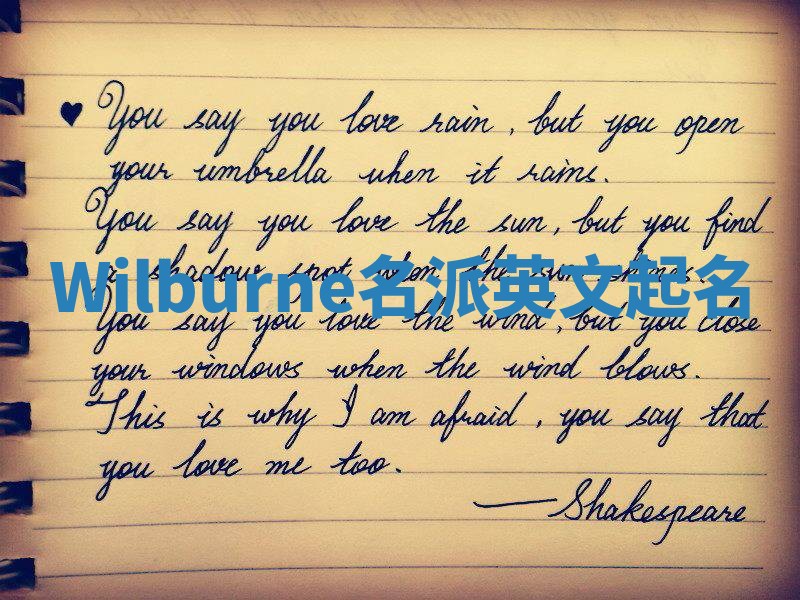 You say you love rain, but you open
your umbrella when it rains.
You say you love the sun, but you find
a shadow spot when the sun shines.
Wilburne名派英文起名
You say you love the wind, but you close
your windows when the wind blows.
This is why I am afraid, you say that
you love me too.
— Shakespeare